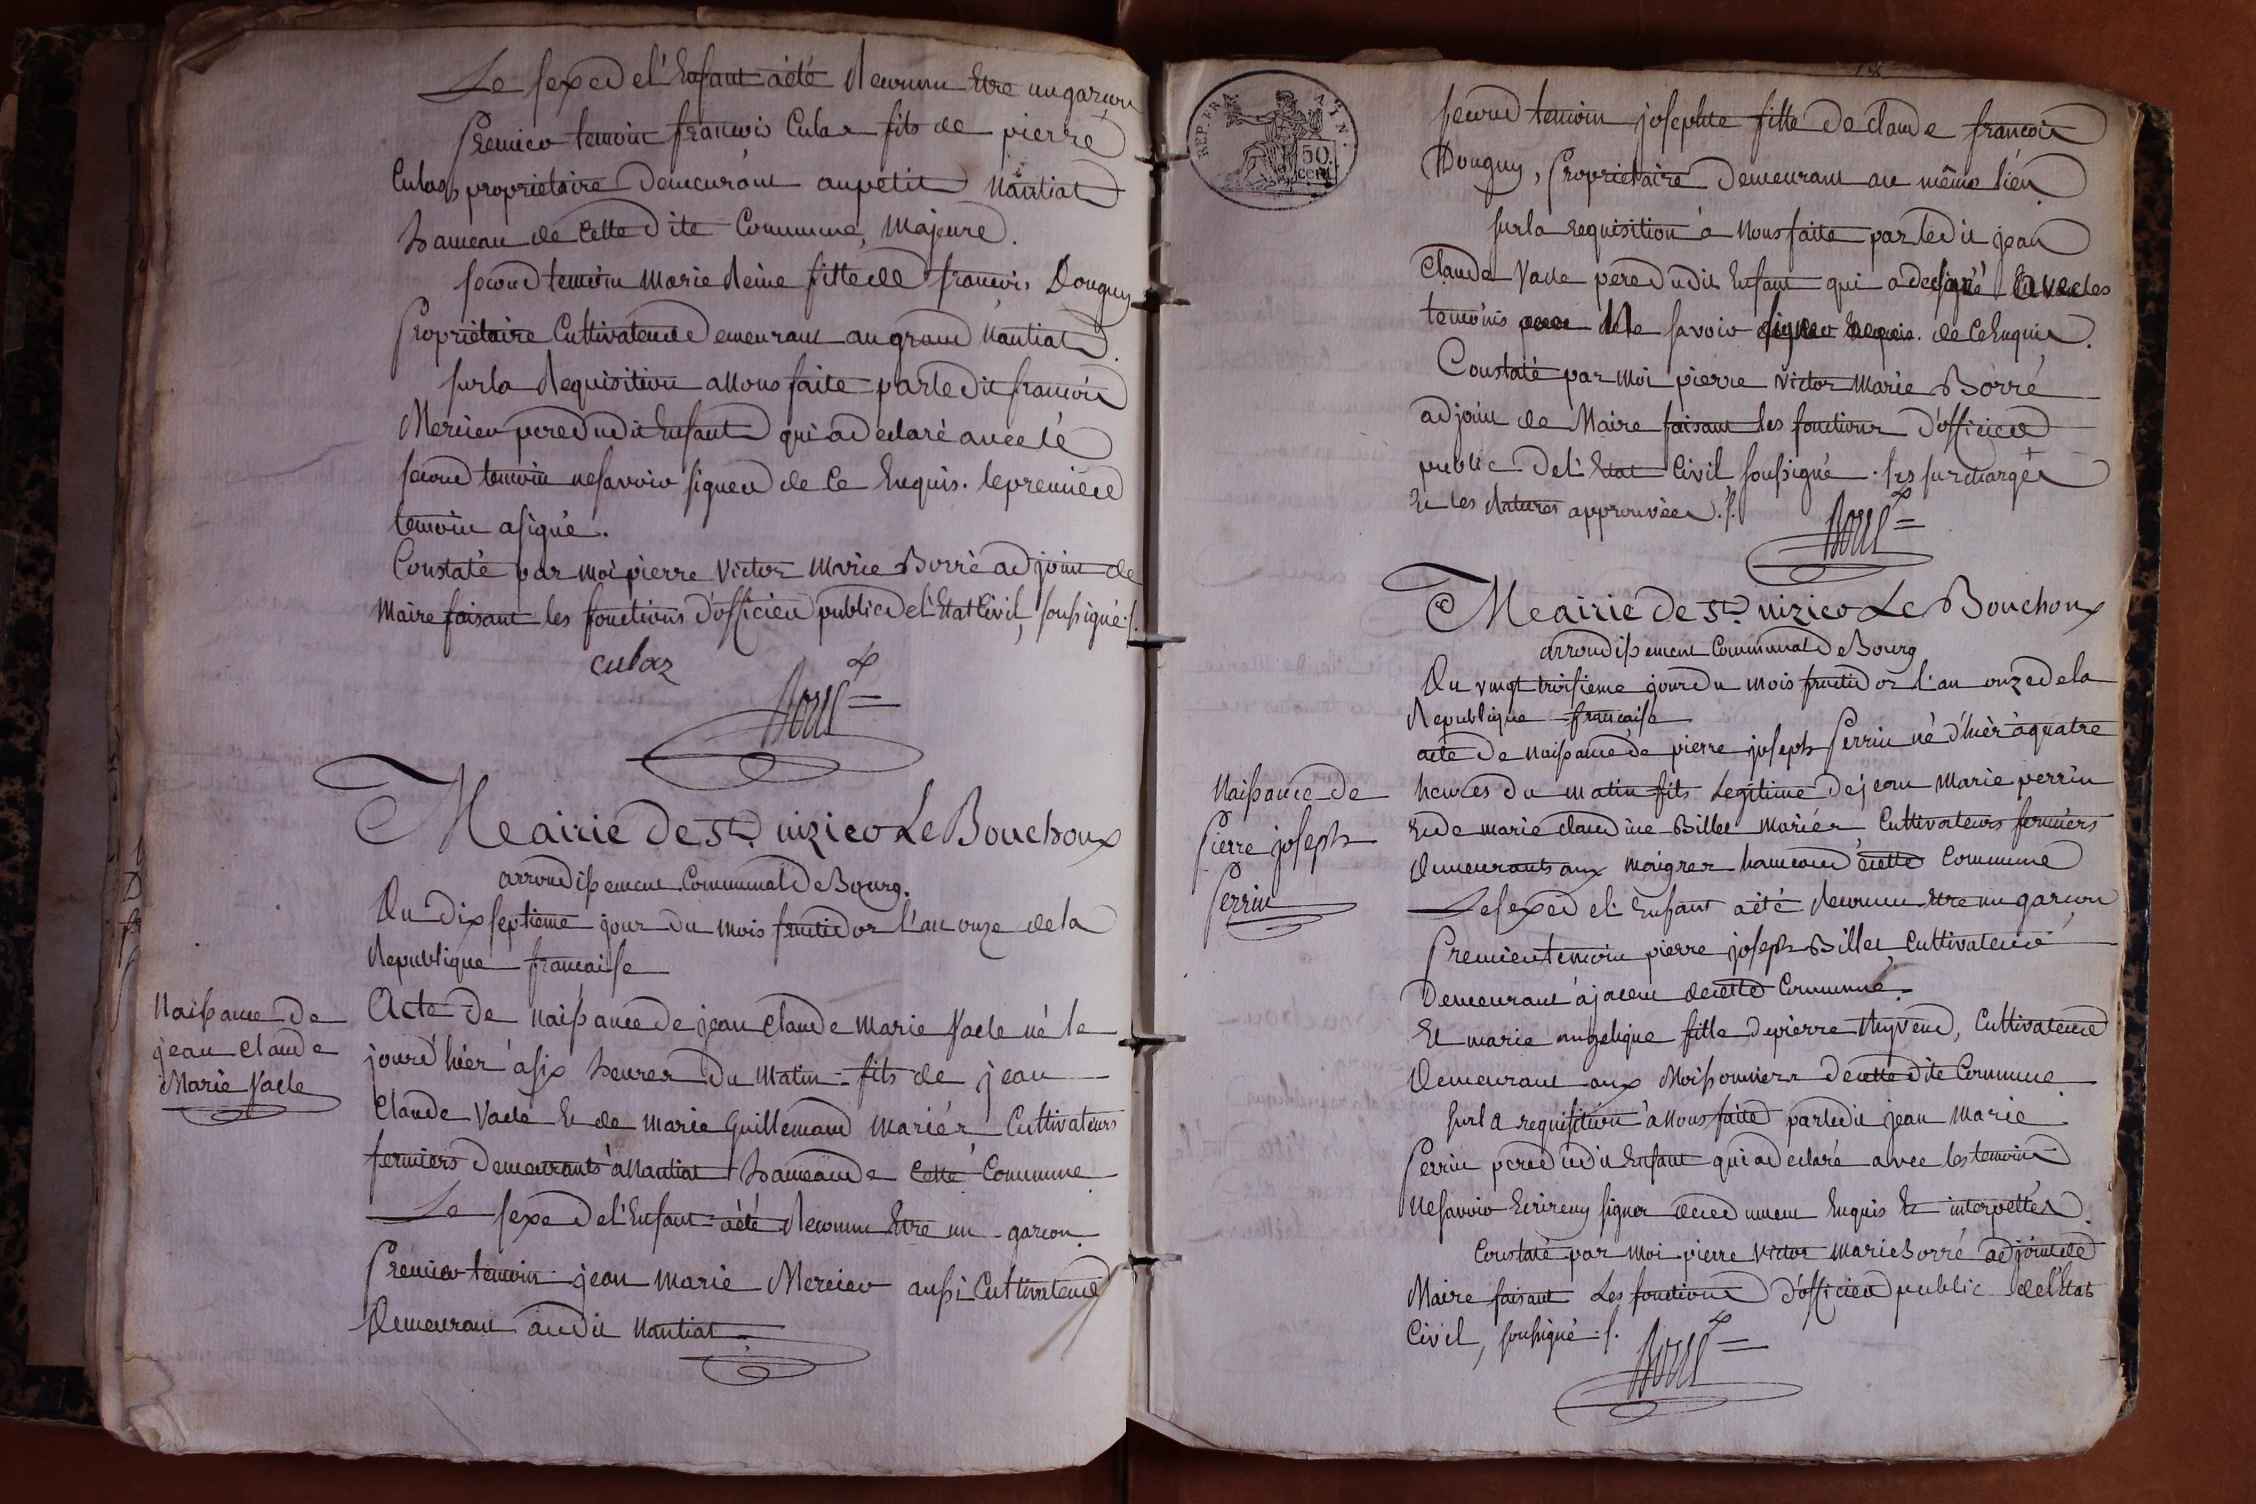 Le sexe de l'Enfant à été Reconnu Etre un garçon
Premier temoin francois Culas fils de pierre
Culas proprietaire demeurant au petit Nantiat
hameau de Cette dite Commune, Majeure.
second temoin Marie Reine fille de francois Donguy
Propriétaire Cultivateur demeurant au grand Nantiat.
sur la Requisition a Nous faite par le dit francois
Mercier pere du dit Enfant qui a declaré avec le
second temoin ne savoir signer de ce Enquis. le premier
temoin a signé.
Constaté par Moi pierre Victor Marie Borré adjoint de
Maire faisant les fonctions d'officier public de l'Etat Civil, soussigné ./.
culaz
Borré
Mairie de St. nizier Le Bouchoux
arrondissement Communal de Bourg.
Du dix septieme jour du mois fructidor l'an onze de la
Republique francaise
Naissance de
jean Claude
Marie Vacle
Acte de Naissance de jean Claude Marie Vacle né le
jour d'hier à six heures du Matin fils de jean
Claude Vacle Et de Marie Guillemaud Mariés Cultivateurs
fermiers demeurants à Nantiat hameau de Cette Commune
Le sexe de l'Enfant à été Reconnu Etre un garcon.
Premier temoin jean Marie Mercier aussi Cultivateur
Demeurant au dit Nantiat
REP. FRA.
50
cent.
second temoin josephte fille de Claude francois
Donguy, Proprietaire Demeurant au même lieu
sur la requisition à Nous faite par le dit jean
Claude Vacle pere du dit Enfant qui a declaré avec les
temoins Ne savoir signer de ce Enquis.
Constaté par Moi pierre Victor Marie Borré
adjoint de Maire faisant les fonctions d'officier
public de l'Etat Civil soussigné. les surcharges
Et les Ratures approuvées ./.
Borré
Mairie de St. nizier Le Bouchoux
arrondissement Communal de Bourg
Du vingt troisieme jour du mois fructidor l'an onze de la
Republique francaise
Naissance de
Pierre joseph
Perrin
acte de naissance de pierre joseph Perrin né d'hièr à quatre
heures du matin fils Legitime de jean Marie perrin
Et de marie claudine Billet Mariés Cultivateurs fermiers
Demeurants aux Maigres hameau de cette Commune
Le sexe de l'Enfant a été Reconnu Etre un garcon
Premier temoin pierre joseph Billet, Cultivateur
Demeurant à jaceu de cette Commune.
Et marie angelique fille de pierre Thyvend, Cultivateur
Demeurant aux Moissonniers de cette dite Commune
sur la requisition à Nous faite par le dit jean Marie
Perrin pere du dit Enfant qui a declaré avec les temoins
Ne savoir Ecrire ny signer de ce dument Enquis Et interpellés.
Constaté par Moi pierre Victor Marie Borré adjoint de
Maire faisant Les fonctions d'officier public de l'Etat
Civil, soussigné ./.
Borré